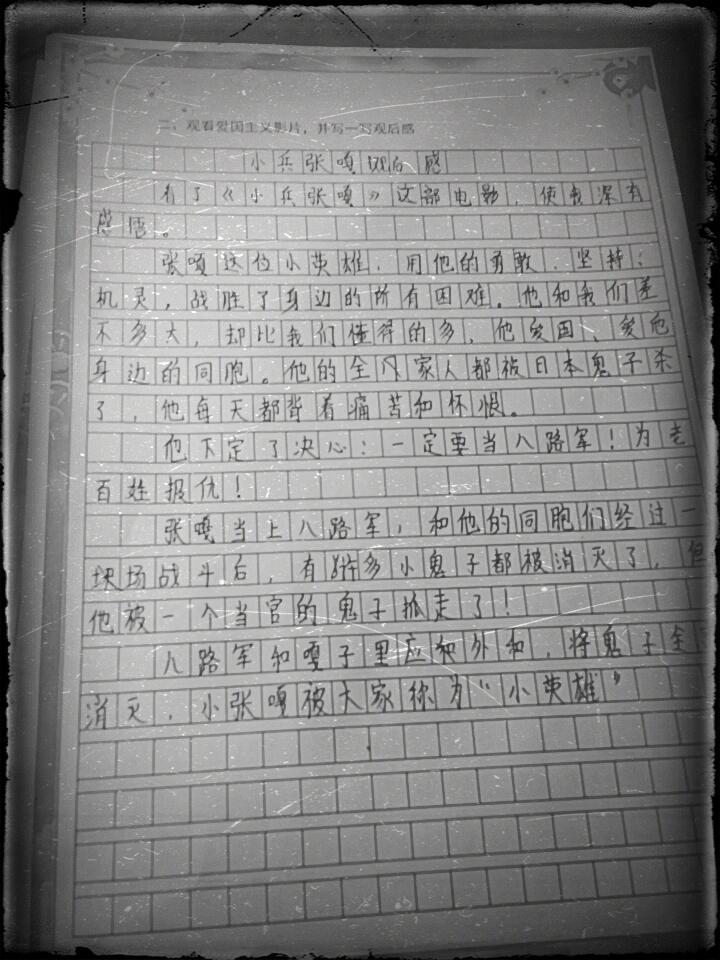 二、观看爱国主义影片，并写一写观后感
小兵张嘎观后感
看了《小兵张嘎》这部电影，使我深有
感悟。
张嘎这位小英雄，用他的勇敢、坚持、
机灵，战胜了身边的所有困难。他和我们差
不多大，却比我们懂得的多，他爱国、爱他
身边的同胞。他的全家人都被日本鬼子杀
了，他每天都背着痛苦和怀恨。
他下定了决心：一定要当八路军！为老
百姓报仇！
张嘎当上八路军，和他的同胞们经过一
场战斗后，有许多小鬼子都被消灭了，但
他被一个当官的鬼子抓走了！
八路军和嘎子里应和外和，将鬼子全
消灭，小张嘎被大家称为“小英雄”